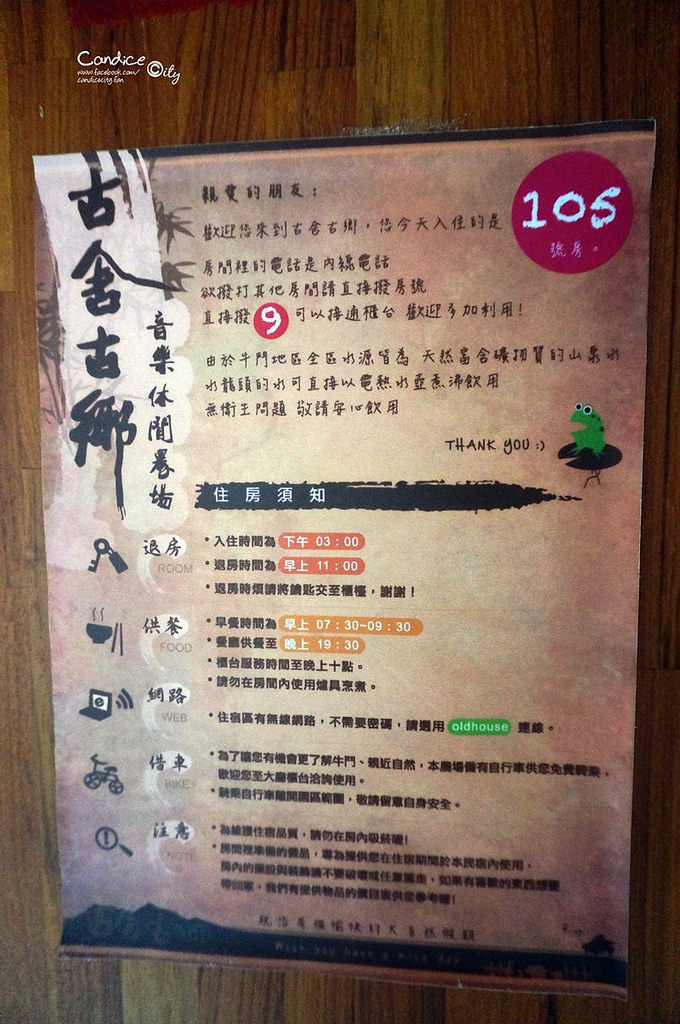 Candice City
www.facebook.com/
candicecity.fan
古舍古鄉
音樂休閒農場
親愛的朋友：
歡迎您來到古舍古鄉，您今天入住的是
105
號房。
房間裡的電話是內線電話
欲撥打其他房間請直接撥房號
直接撥 9 可以接通櫃台 歡迎多加利用！
由於牛鬥地區全區水源皆為 天然富含礦物質的山泉水
水龍頭的水可直接以電熱水壺煮沸飲用
無衛生問題 敬請安心飲用
THANK YOU :)
住房須知
退房
ROOM
• 入住時間為 下午 03：00
• 退房時間為 早上 11：00
• 退房時煩請將鑰匙交至櫃檯，謝謝！
供餐
FOOD
• 早餐時間為 早上 07：30~09：30
• 餐廳供餐至 晚上 19：30
• 櫃台服務時間至晚上十點。
• 請勿在房間內使用爐具烹煮。
網路
WEB
• 住宿區有無線網路，不需要密碼，請選用 oldhouse 連線。
借車
BIKE
• 為了讓您有機會更了解牛鬥、親近自然，本農場備有自行車供您免費騎乘，
歡迎您至大廳櫃台洽詢使用。
• 騎乘自行車離開園區範圍，敬請留意自身安全。
注意
NOTE
• 為維護住宿品質，請勿在房內吸菸喔！
• 房間裡準備的備品，專為提供您在住宿期間於本民宿內使用，
房內的擺設與裝飾請不要破壞或任意攜走、如果有喜歡的東西想要
帶回家，我們有提供物品的價目表供您參考喔！
祝您有個愉快的大自然假期
Wish you have a nice day